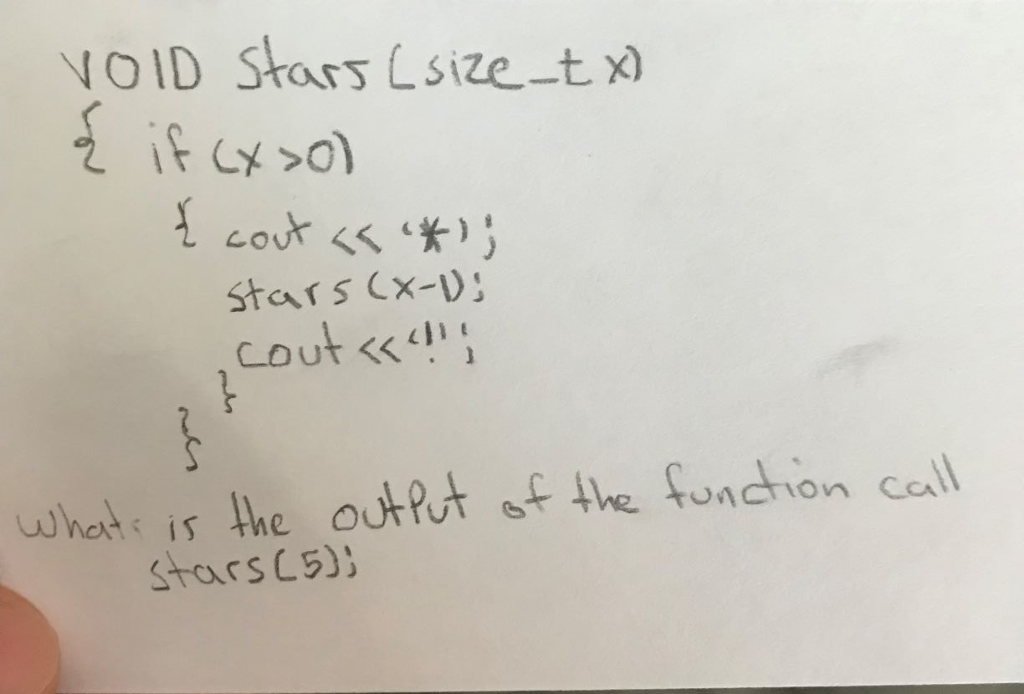 VOID Stars (size_t x)
{ if (x >0)
{ cout << '*';
stars (x-1);
cout << '!';
}
}
What is the output of the function call
stars(5);